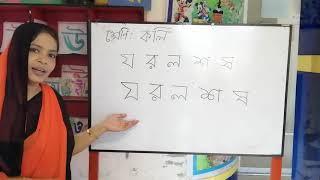 শ্রেণি: কলি
য র ল শ ষ
য র ল শ ষ